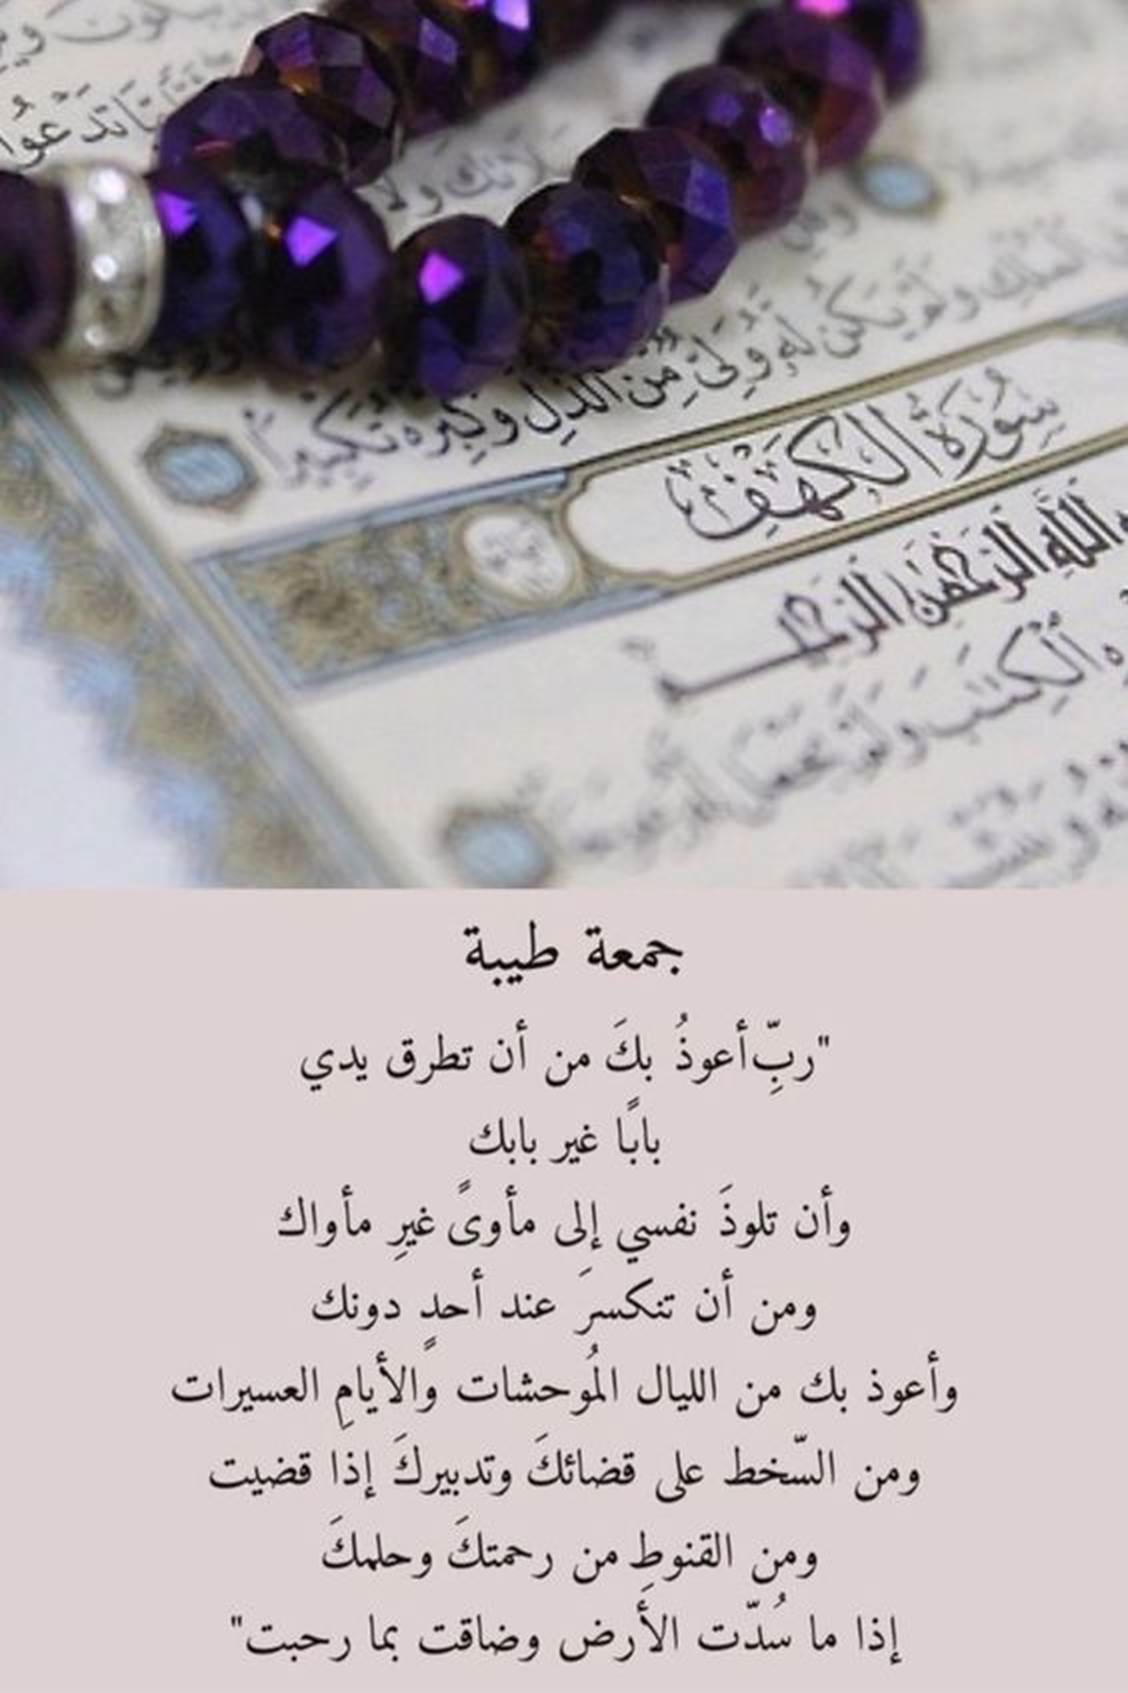 تدعوا
ولم يكن له ولي من الذل وكبره تكبيرا
سورة الكهف
الله الرحمن الرحيم
الكتب ولم يجعل له عوجا
جمعة طيبة
"ربِّ أعوذُ بكَ من أن تطرق يدي
بابًا غير بابك
وأن تلوذَ نفسي إلى مأوىً غيرِ مأواك
ومن أن تنكسرَ عند أحدٍ دونك
وأعوذ بك من الليال المُوحشات والأيامِ العسيرات
ومن السّخط على قضائكَ وتدبيركَ إذا قضيت
ومن القنوطِ من رحمتكَ وحلمكَ
إذا ما سُدّت الأرض وضاقت بما رحبت"